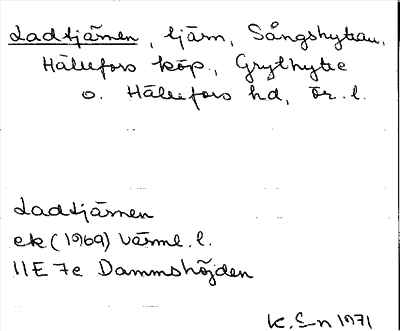 Ladtjärnen, tjärn, Sångshyttan,
Hällefors köp., Grythytte
o. Hällefors hd, Ör. l.
Ladtjärnen
ek (1969) Värml. l.
11E 7e Dammshöjden
K. E-n 1971